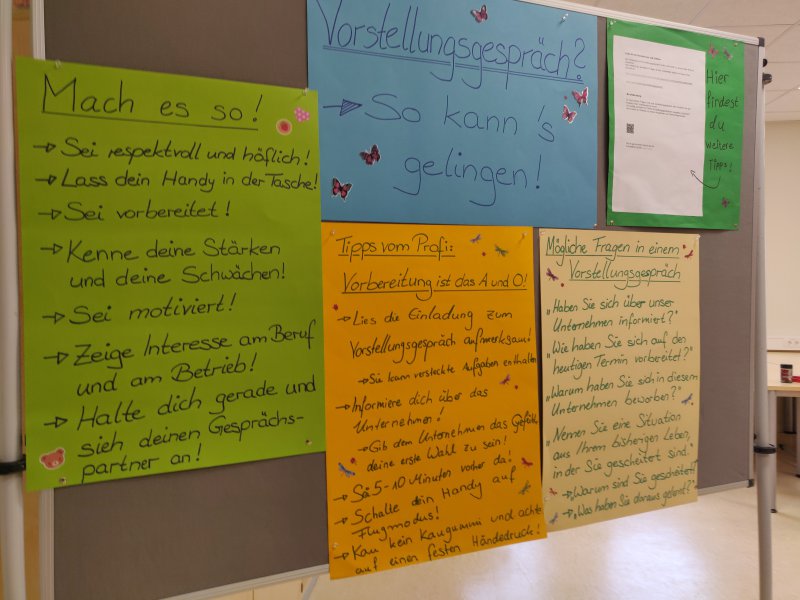 Mach es so!
→ Sei respektvoll und höflich!
→ Lass dein Handy in der Tasche!
→ Sei vorbereitet!
→ Kenne deine Stärken
und deine Schwächen!
→ Sei motiviert!
→ Zeige Interesse am Beruf
und am Betrieb!
→ Halte dich gerade und
sieh deinen Gesprächs-
partner an!
Vorstellungsgespräch?
→ So kann's
gelingen!
Hier
findest
du
weitere
Tipps!
Tipps vom Profi:
Vorbereitung ist das A und O!
→ Lies die Einladung zum
Vorstellungsgespräch aufmerksam!
→ Sie kann versteckte Aufgaben enthalten
→ Informiere dich über das
Unternehmen!
→ Gib dem Unternehmen das Gefühl,
deine erste Wahl zu sein!
→ Sei 5-10 Minuten vorher da!
→ Schalte dein Handy auf
Flugmodus!
→ Kau kein Kaugummi und achte
auf einen festen Händedruck!
Mögliche Fragen in einem
Vorstellungsgespräch
„Haben Sie sich über unser
Unternehmen informiert?"
„Wie haben Sie sich auf den
heutigen Termin vorbereitet?"
„Warum haben Sie sich in diesem
Unternehmen beworben?"
„Nennen Sie eine Situation
aus Ihrem bisherigen Leben,
in der Sie gescheitert sind."
→ „Warum sind Sie gescheitert?"
→ „Was haben Sie daraus gelernt?"